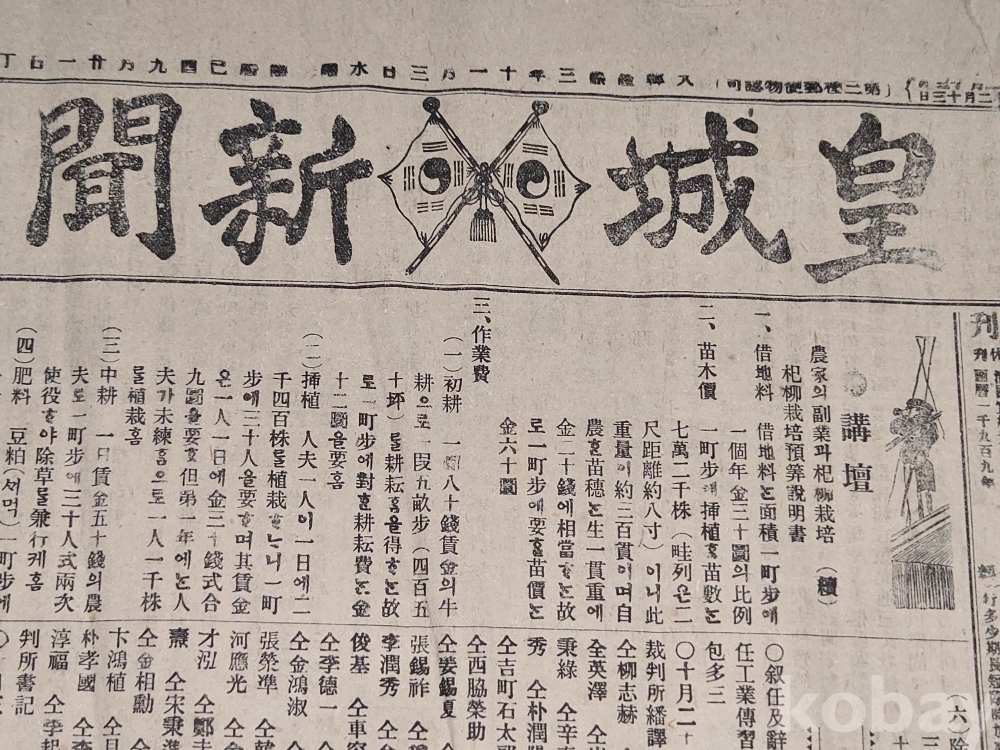 大韓隆熙三年十一月三日水曜 陰曆己酉九月廿一日丁
(第二種郵便物認可)
皇城新聞
刊
西曆一千九百九年
講壇
農家의副業과杞柳栽培 (續)
杞柳栽培預筭說明書
一、借地料 借地料는面積一町步에
一個年金三十圜의比例
二、苗木價 一町步에揷植홀苗數는
七萬二千株(畦列은二
尺距離約八寸)이니此
重量이約三百貫이며自
農홀苗穗는生一貫重에
金二十錢에相當하는故
로一町步에要홀苗價는
金六十圜
三、作業費
(一)初耕 一圜八十錢賃金의牛
耕으로一段九畝步(四百五
十坪)를耕耘홈을得하는故
로一町步에對홀耕耘費는金
十二圜을要홈
(二)揷植 人夫一人이一日에二
千四百株를植栽하느니一町
步에三十人을要하며其賃金
은一人一日에金三十錢式合
九圜을要홈但第一年에는人
夫가未練홈으로一人一千株
를植栽홈
(三)中耕 一日賃金五十錢의農
夫로一町步에三十人式兩次
使役하야除草를兼行케홈
(四)肥料 豆粕(세먹)一町步에
〇叙任及辭
任工業傳習
包多三
〇十月二十
裁判所繙譯
仝柳志赫
仝英澤
秉綠 仝辛
秀 仝朴潤
仝吉町石太郎
仝西脇榮助
仝裵錫夏
張錫祚
李潤秀
俊基 仝車
仝李德一
仝金鴻淑
張榮準
河應光
才泓 仝鄭
燾 仝宋秉準
仝金相勳
卞鴻植
朴孝國 仝李
淳福 仝李起
判所書記
koba